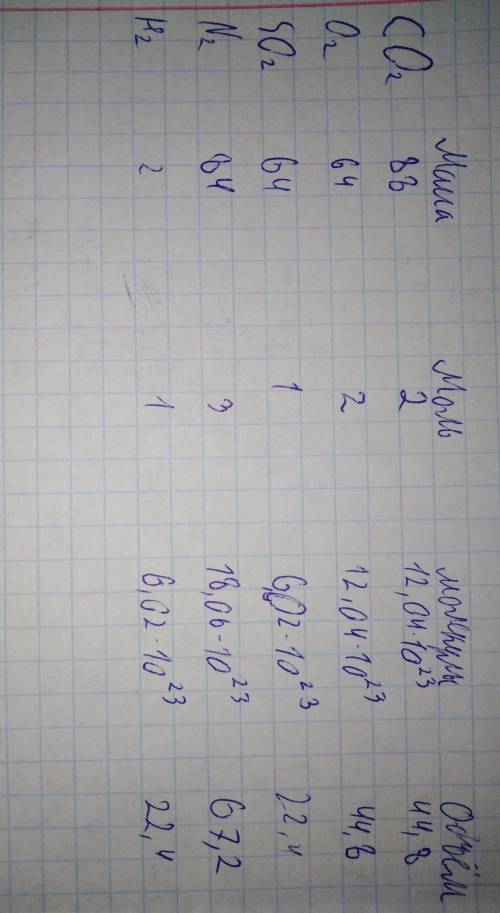 Масса Моль молекулы Объём
CO₂ 88 2 12,04·10²³ 44,8
O₂ 64 2 12,04·10²³ 44,8
SO₂ 64 1 6,02·10²³ 22,4
N₂ 84 3 18,06·10²³ 67,2
H₂ 2 1 6,02·10²³ 22,4